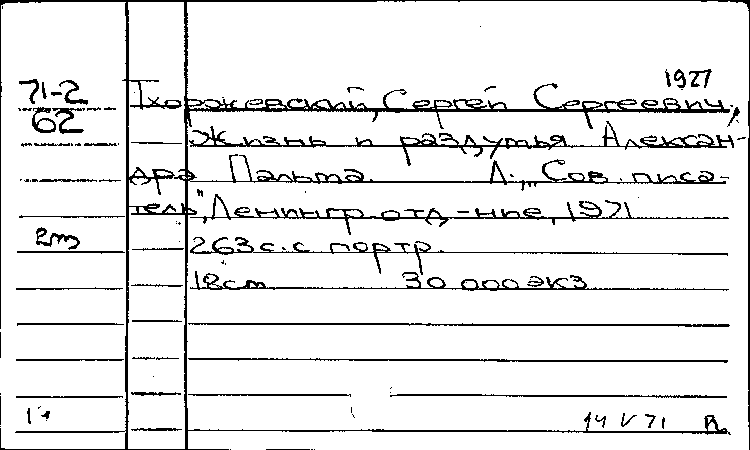 1927
71-2 Тхоржевский, Сергей Сергеевич.
62 Жизнь и раздумья Алексан-
дра Пальма. Л., „Сов. писа-
тель", Ленингр. отд-ние, 1971
263 с. с портр.
18см 30 000 экз
14 V 71